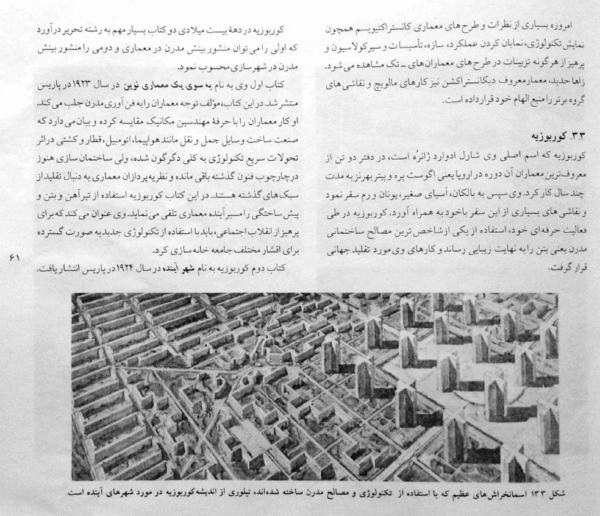 امروزه بسیاری از نظرات و طرح‌های معماری کانستراکتیویسم همچون
نمایش تکنولوژی، نمایان کردن عملکرد، سازه، تأسیسات و سیرکولاسیون و
پرهیز از هرگونه تزیینات در طرح‌های معماران های ـ تک مشاهده می‌شود.
زاها حدید، معمار معروف دیکانستراکشن نیز کارهای مالویچ و نقاشی‌های
گروه برتر را منبع الهام خود قرار داده است.
۳.۳ کوربوزیه
کوربوزیه که اسم اصلی وی شارل ادوارد ژانره است، در دفتر دو تن از
معروف‌ترین معماران آن دوره در اروپا یعنی اگوست پره و پیتر بهرنز به مدت
چند سال کار کرد. وی سپس به بالکان، آسیای صغیر، یونان و رم سفر نمود
و نقاشی‌های بسیاری از این سفر با خود به همراه آورد. کوربوزیه در طی
فعالیت حرفه‌ای خود، استفاده از یکی از شاخص ترین مصالح ساختمانی
مدرن یعنی بتن را به نهایت زیبایی رساند و کارهای وی مورد تقلید جهانی
قرار گرفت.
کوربوزیه در دههٔ بیست میلادی دو کتاب بسیار مهم به رشته تحریر درآورد
که اولی را می‌توان منشور بینش مدرن در معماری و دومی را منشور بینش
مدرن در شهرسازی محسوب نمود.
کتاب اول وی به نام به سوی یک معماری نوین در سال ۱۹۲۳ در پاریس
منتشر شد. در این کتاب، مؤلف توجه معماران را به فن آوری مدرن جلب می‌کند.
او کار معماران را با حرفهٔ مهندسین مکانیک مقایسه کرده و بیان می‌دارد که
صنعت ساخت وسایل حمل و نقل مانند هواپیما، اتومبیل، قطار و کشتی در اثر
تحولات سریع تکنولوژی به کلی دگرگون شده، ولی ساختمان سازی هنوز
در چارچوب فنون گذشته باقی مانده و نظریه پردازان معماری به دنبال تقلید از
سبک‌های گذشته هستند. در این کتاب کوربوزیه استفاده از تیرآهن و بتن و
پیش ساختگی را مسیر آینده معماری تلقی می‌نماید. وی عنوان می‌کند که برای
پرهیز از انقلاب اجتماعی، باید با استفاده از تکنولوژی جدید به صورت گسترده
برای اقشار مختلف جامعه خانه سازی کرد.
کتاب دوم کوربوزیه به نام شهر آینده در سال ۱۹۲۴ در پاریس انتشار یافت.
۶۱
شکل ۳.۳ ا آسمانخراش‌های عظیم که با استفاده از تکنولوژی و مصالح مدرن ساخته شده‌اند، تبلوری از اندیشه کوربوزیه در مورد شهرهای آینده است.